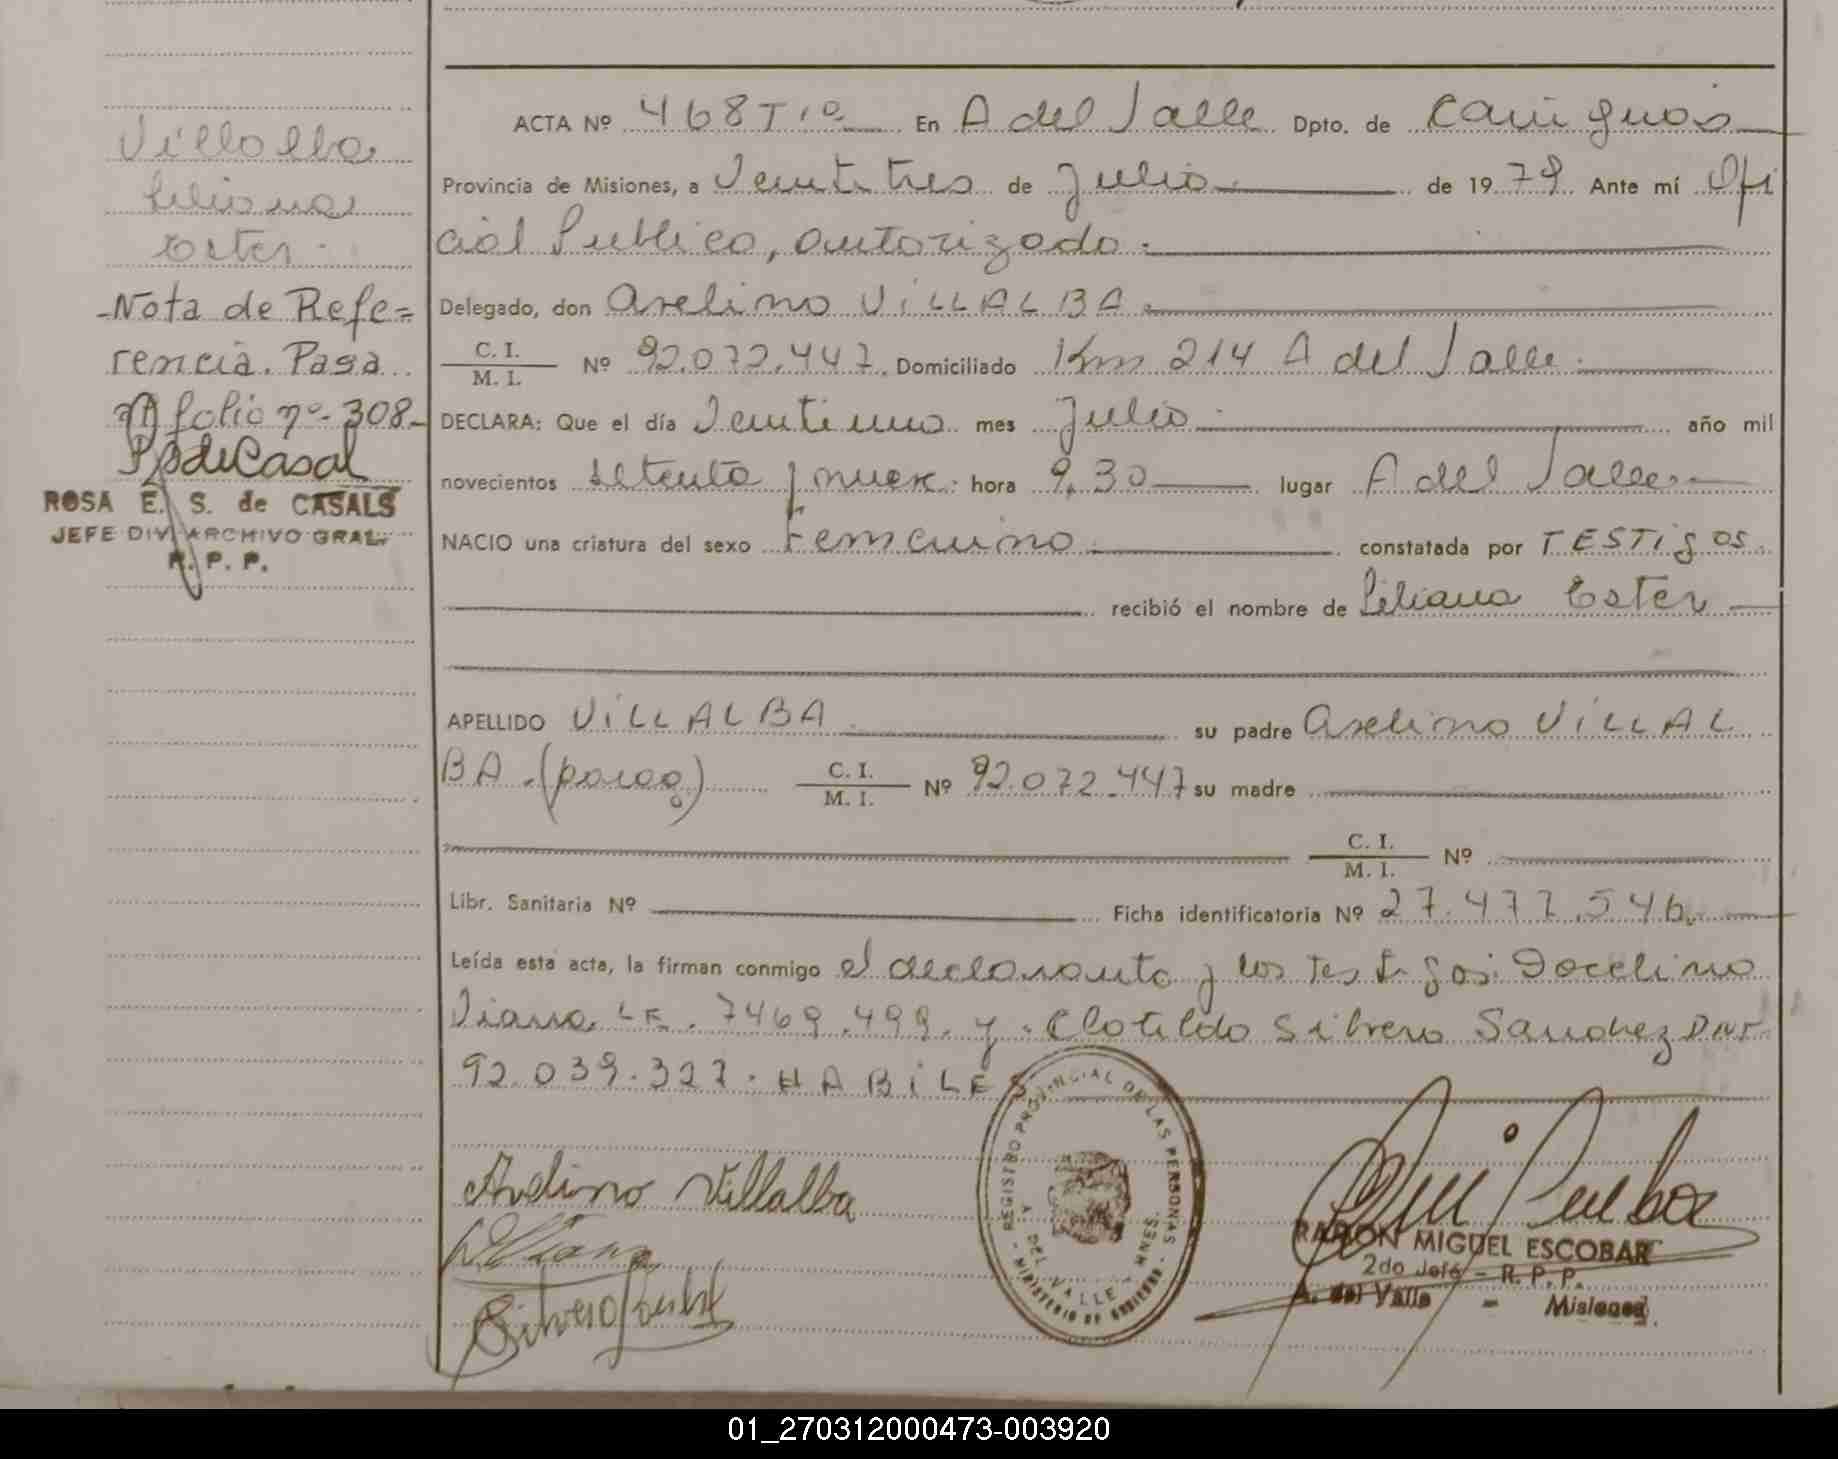 Villalba
Liliana
Ester.
-Nota de Refe=
rencia. Pasa
Al folio nº-308-
ROSA E. S. de CASALS
JEFE DIV. ARCHIVO GRAL.
R. P. P.
ACTA Nº 468 Tº En A del Valle Dpto. de Cainguás
Provincia de Misiones, a Veintitres de Julio de 1979 Ante mí Ofi
cial Publico, autorizado.
Delegado, don Avelino VILLALBA
C. I. / M. I. Nº 92.072.447. Domiciliado Km 214 A del Valle.
DECLARA: Que el día Veintiuno mes Julio año mil
novecientos setenta y nueve: hora 9,30 lugar A del Valle
NACIO una criatura del sexo Femenino constatada por TESTigos
recibió el nombre de Liliana Ester
APELLIDO VILLALBA su padre Avelino VILLAL
BA.(parag) C. I. / M. I. Nº 92.072.447 su madre
C. I. / M. I. Nº
Libr. Sanitaria Nº Ficha identificatoria Nº 27.477.546.
Leída esta acta, la firman conmigo el declarante y los Testigos: Docelino
Viana LE. 7469.499. y. Clotildo Silvero Sanchez DNI.
92.039.327. HABILES
Avelino Villalba
REGISTRO PROVINCIAL DE LAS PERSONAS
A DEL VALLE - MNES.
- MINISTERIO DE GOBIERNO -
RAMON MIGUEL ESCOBAR
2do Jefe - R. P. P.
A. del Valle - Misiones.
01_270312000473-003920